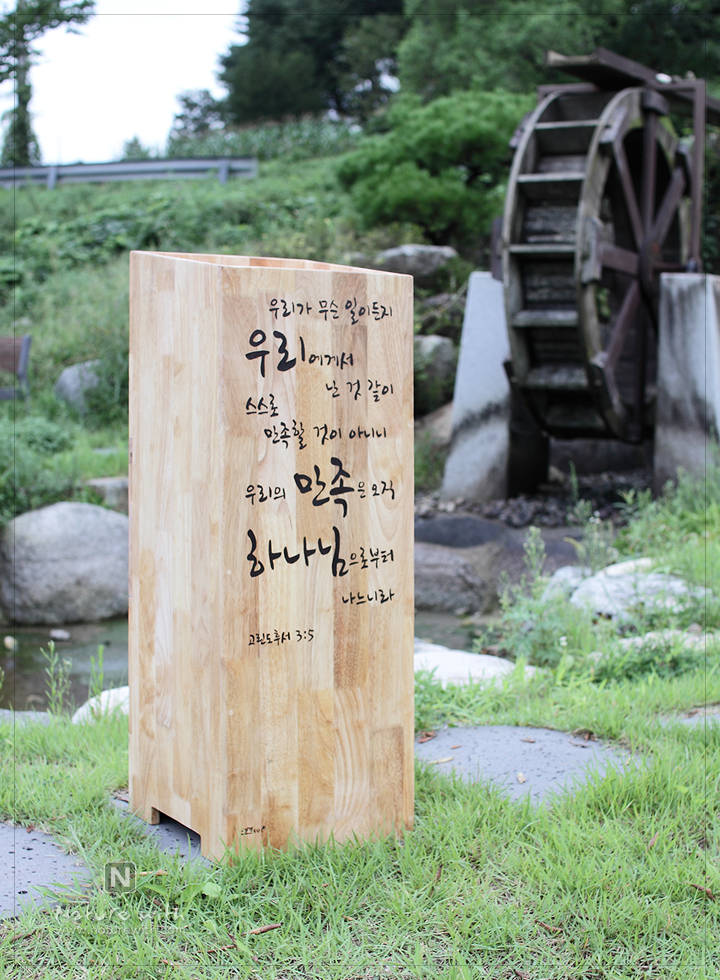 우리가 무슨 일이든지
우리에게서
난 것 같이
스스로
만족할 것이 아니니
우리의 만족은 오직
하나님으로부터
나느니라
고린도후서 3:5
N
Nature with
www.naturewith.com